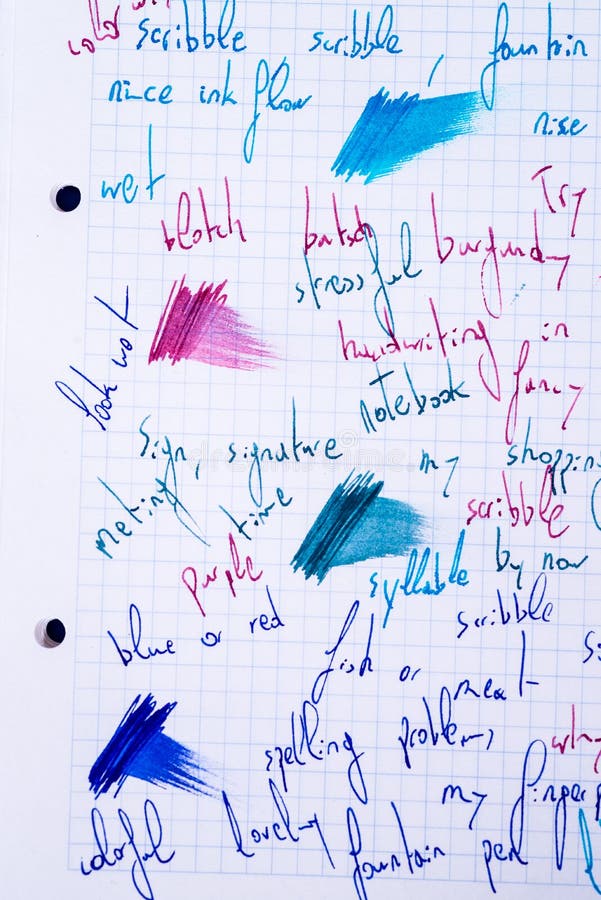 scribble, scribble, fountain
nice ink flow
nise
wet
Try
blotch butsch burgundy
stressful
look wot
handwriting in
notebook fancy
sign, signature my shopping
meting time scribble
purple syllable by now
blue or red scribble
fish or meat
spelling problems why
my finger
colorful lovely fountain pen